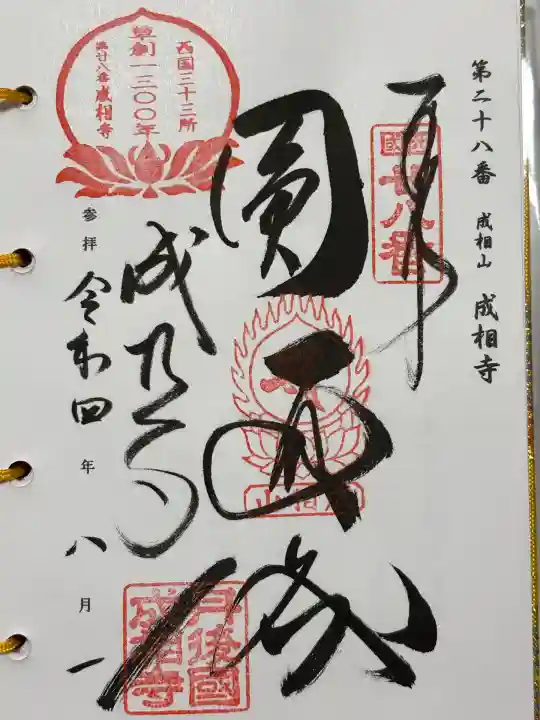 第二十八番 成相山 成相寺
西國
廿八番
奉拝
圓通成
成相寺
丹後國
成相寺
西国三十三所
草創一三〇〇年
第廿八番 成相寺
参拝 令和四年 八月一